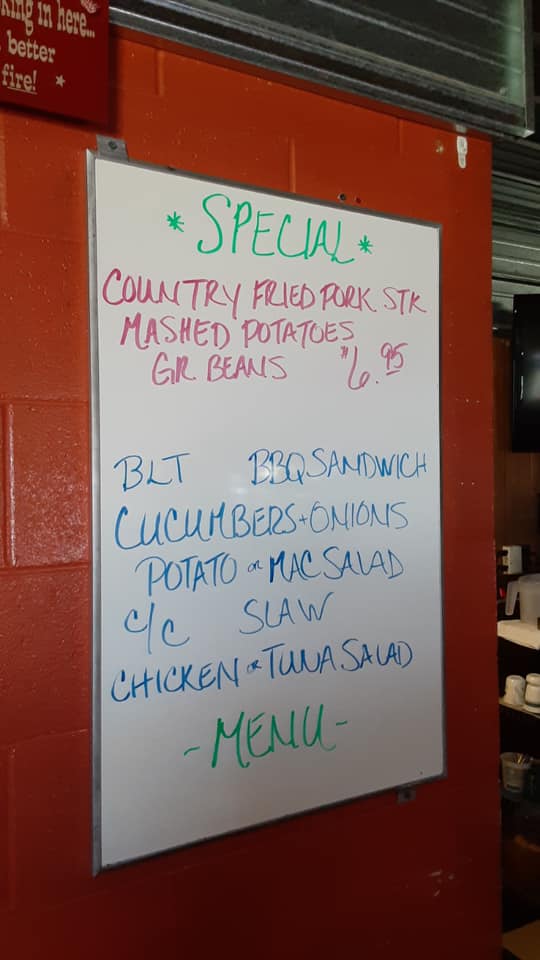 king in here...
better
fire!
* SPECIAL *
COUNTRY FRIED PORK STK
MASHED POTATOES
GR. BEANS $6.95
BLT BBQ SANDWICH
CUCUMBERS + ONIONS
POTATO or MAC SALAD
C/C SLAW
CHICKEN or TUNA SALAD
- MENU -